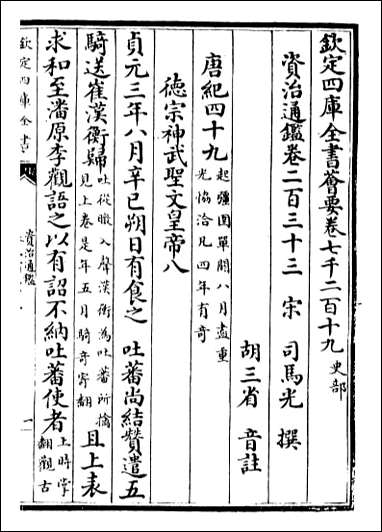 欽定四庫全書薈要卷七千二百十九 史部
資治通鑑卷二百三十三 宋 司馬光 撰
胡三省 音註
唐紀四十九 起彊圉單閼八月盡重光協洽凡四年有奇
德宗神武聖文皇帝八
貞元三年八月辛巳朔日有食之 吐蕃尚結贊遣五
騎送崔漢衡歸 吐從暾入聲漢衡為吐蕃所擒見上卷是年五月騎奇寄翻 且上表
求和至潘原李觀語之以有詔不納吐蕃使者 上時掌翻觀古
欽定四庫全書
資治通鑑
一